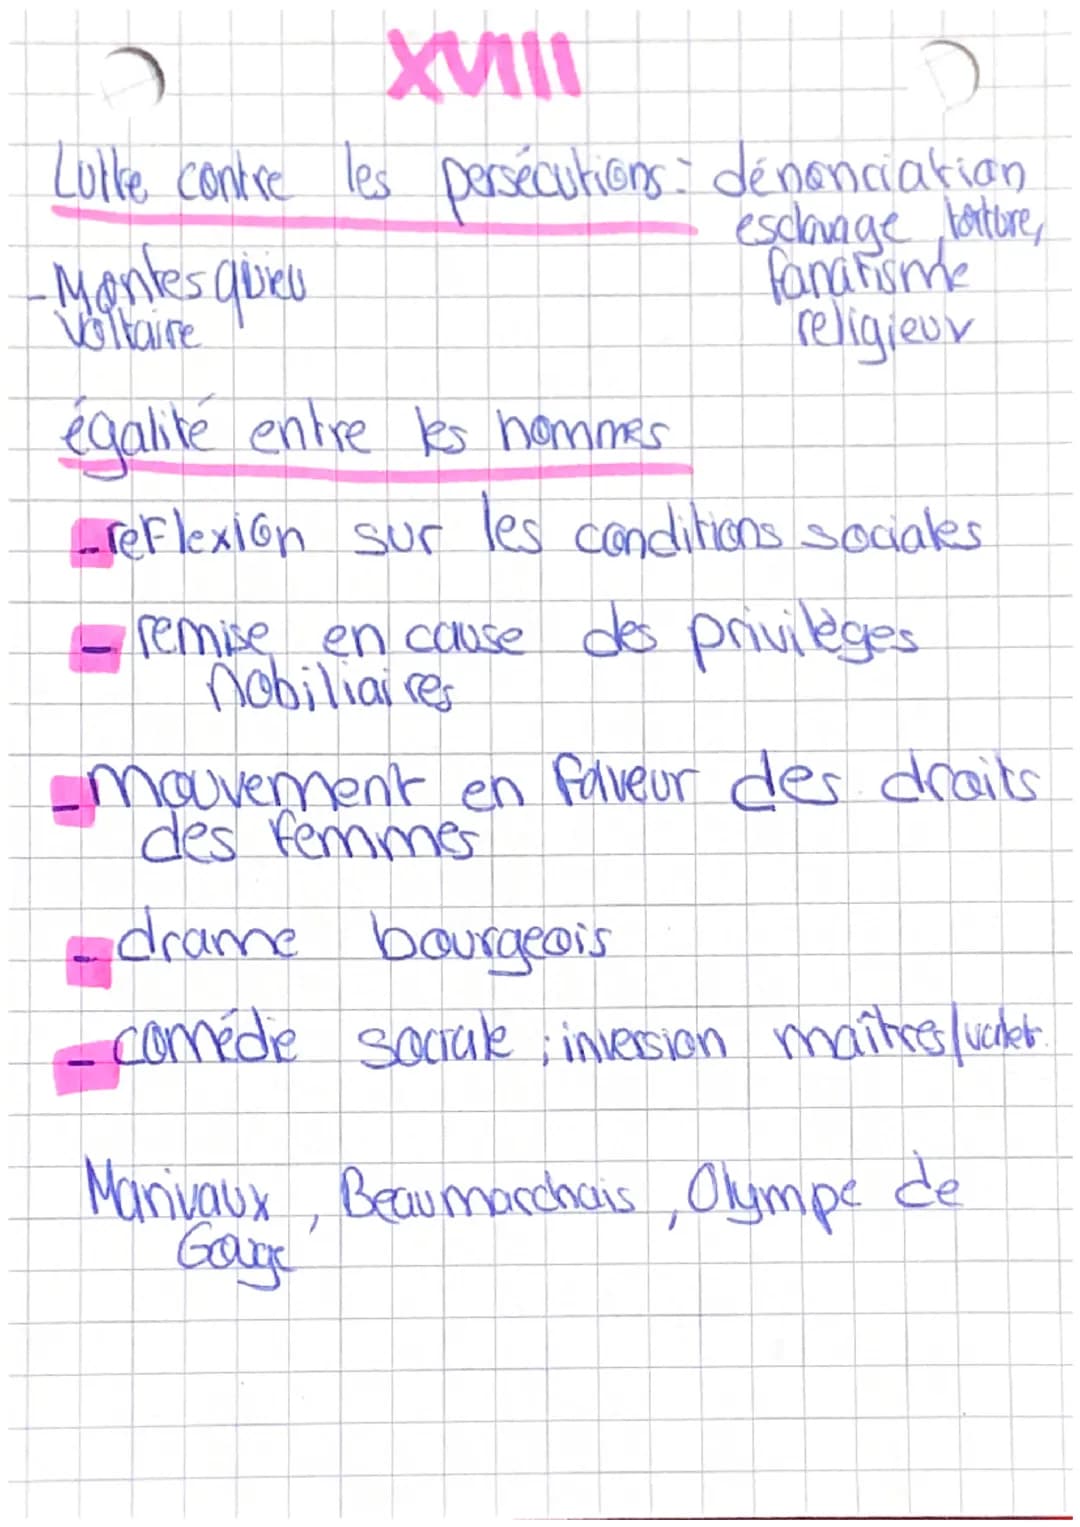 XVIII
Lutte contre les persécutions : dénonciation
esclavage, torture,
fanatisme
religieux
- Montesquieu
Voltaire
égalité entre les hommes
- reflexion sur les conditions sociales
- remise en cause des privilèges
nobiliaires
- mouvement en faveur des droits
des femmes
- drame bourgeois
- comédie sociale ; inversion maîtres/valet.
Marivaux, Beaumarchais, Olympe de
Gouge